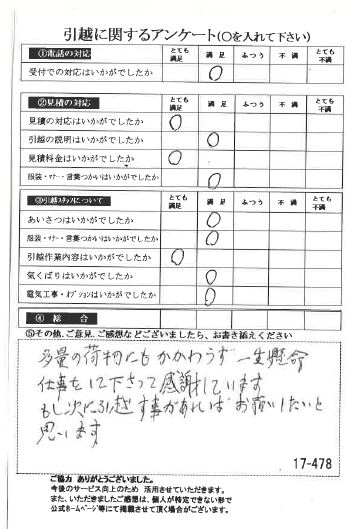 引越に関するアンケート(〇を入れて下さい)
①電話の対応 とても満足 満足 ふつう 不満 とても不満
受付での対応はいかがでしたか 〇
②見積の対応 とても満足 満足 ふつう 不満 とても不満
見積の対応はいかがでしたか 〇
引越の説明はいかがでしたか 〇
見積料金はいかがでしたか 〇
服装・マナー・言葉つかいはいかがでしたか 〇
③引越スタッフについて とても満足 満足 ふつう 不満 とても不満
あいさつはいかがでしたか 〇
服装・マナー・言葉つかいはいかがでしたか 〇
引越作業内容はいかがでしたか 〇
気くばりはいかがでしたか 〇
電気工事・オプションはいかがでしたか 〇
④ 総 合
⑤その他、ご意見、ご感想などございましたら、お書き添えください
多量の荷物にもかかわらず 一生懸命
仕事をして下さって感謝しています
もし次に引越す事があれば お願いしたいと
思います
17-478
ご協力 ありがとうございました。
今後のサービス向上のため 活用させていただきます。
また、いただきましたご感想は、個人が特定できない形で
公式ホームページ等にて掲載させて頂く場合がございます。